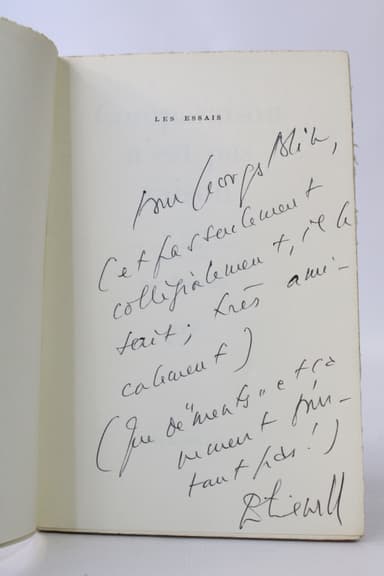 LES ESSAIS
pour Georges Blin,
(et pas seulement
collégialement,
très ami-
calement)
(Que de "ments" et ça
ne ment pour-
tant pas!)
Etiemble